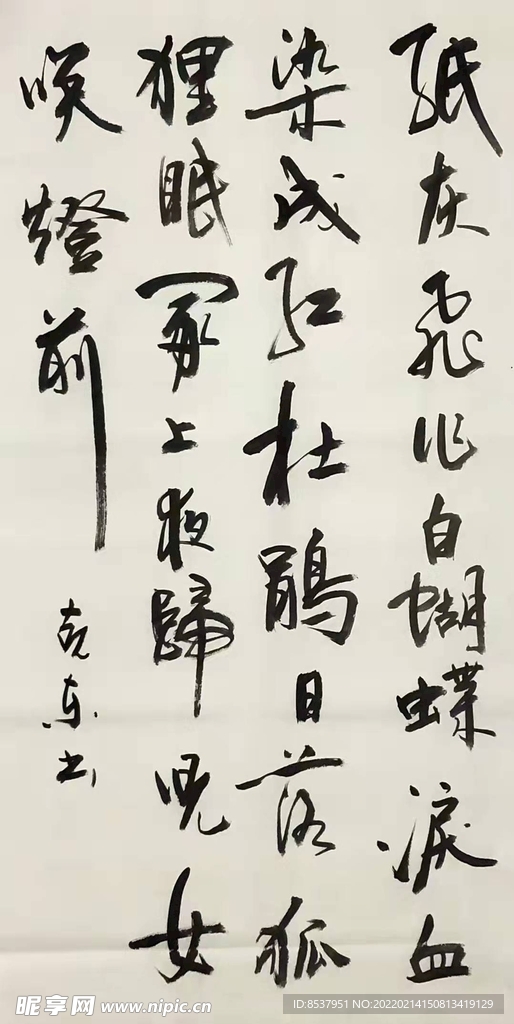 紙灰飛作白蝴蝶淚血
染成紅杜鵑日落狐
狸眠冢上夜歸兒女
咲燈前
克东书
昵享网 www.nipic.cn
ID:8537951 NO:20220214150813419129